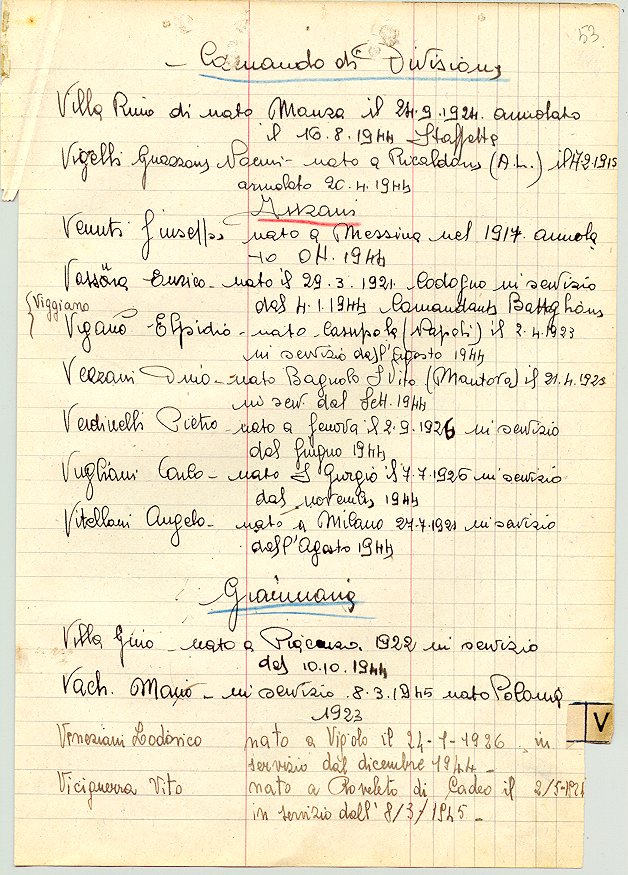 53.
- Comando di Divisione
Villa Rino di nato Monza il 24.9.1924. arruolato
il 16.8.1944 Staffetta
nato a Ricaldone (A.L.) il 17.2.1915
arruolato 20.4.1944
Anzani
Venuti Giuseppe nato a Messina nel 1917. arruola
to 04.1944
Enrico - nato il 29.3.1921. Codogno in servizio
dal 4.1.1944 Comandante Battaglione
{Viggiano
Viganò Elpidio - nato (Napoli) il 2.4.1923
in servizio dall'Agosto 1944
Vezzani Dino - nato Bagnolo S Vito (Mantova) il 21.4.1923
in serv. dal Sett. 1944
Verdinelli Pietro - nato a Genova il 2.9.1926 in servizio
dal Giugno 1944
Carlo - nato S Giorgio il 7.7.1926 in servizio
dal novembre 1944
Vitellani Angelo - nato a Milano 27.7.1921 in servizio
dall'Agosto 1944
Villa Gino nato a Piacenza 1922 in servizio
dal 10.10.1944
Vach. Mario - in servizio 8.3.1945 nato
1923
V
Veneziani Lodovico nato a Vigolo il 24-1-1926 in
servizio dal dicembre 1944 -
Viciguerra Vito nato a Roveleto di Cadeo il
in servizio dall' 8/3/1945 -